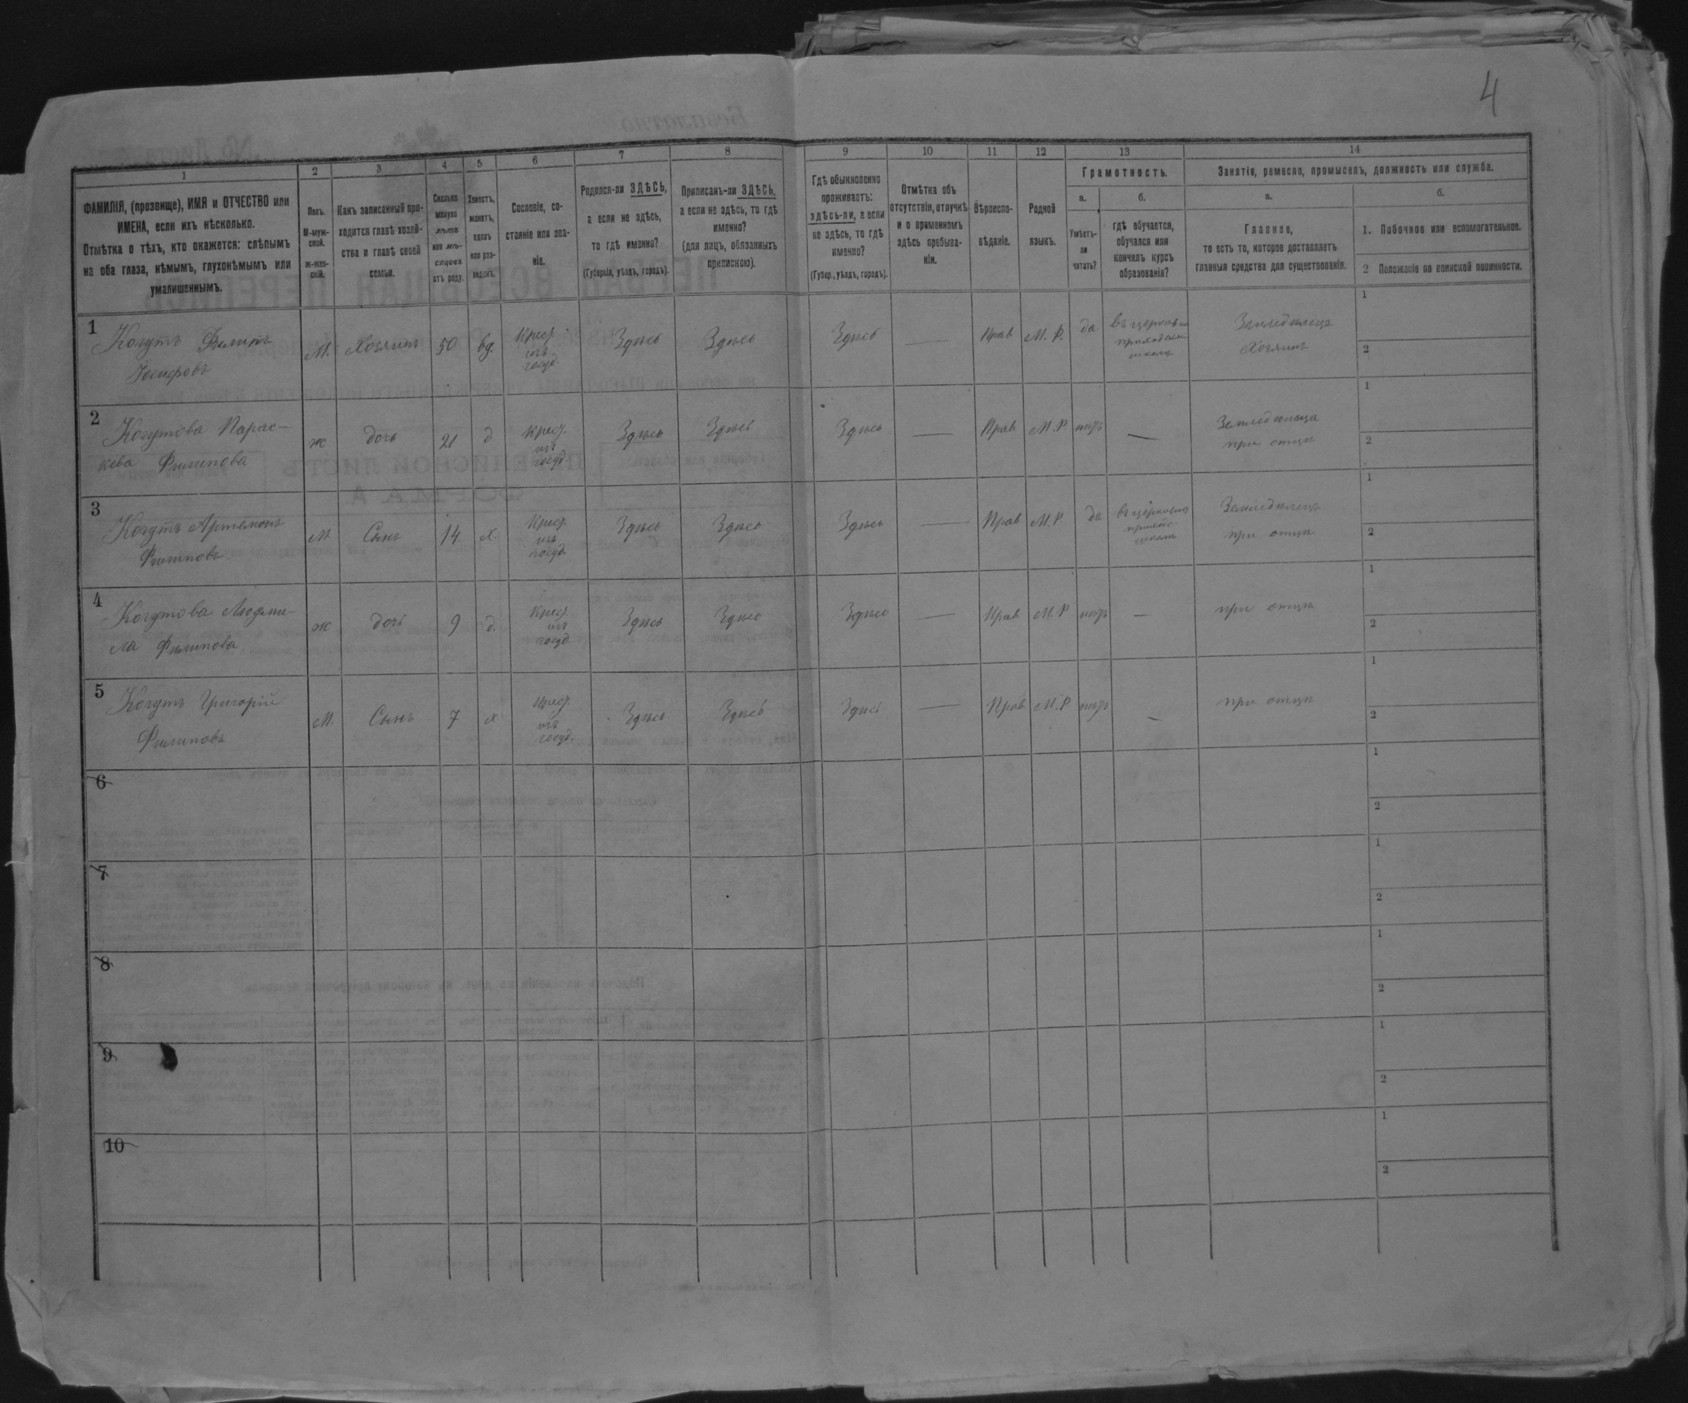 4
1
ФАМИЛІЯ, (прозвище), ИМЯ и ОТЧЕСТВО или
ИМЕНА, если ихъ нѣсколько.
Отмѣтка о тѣхъ, кто окажется: слѣпымъ
на оба глаза, нѣмымъ, глухонѣмымъ или
умалишеннымъ.
2
Полъ.
М-муж-
ской.
Ж-жен-
скій.
3
Какъ записанный при-
ходится главѣ хозяй-
ства и главѣ своей
семьи.
4
Сколько
минуло
лѣтъ
или мѣ-
сяцевъ
отъ роду.
5
Холостъ,
женатъ,
вдовъ
или раз-
веденъ.
6
Сословіе, со-
стояніе или зва-
ніе.
7
Родился-ли ЗДѢСЬ,
а если не здѣсь,
то гдѣ именно?
(Губернія, уѣздъ, городъ).
8
Приписанъ-ли ЗДѢСЬ,
а если не здѣсь, то гдѣ
именно?
(для лицъ, обязанныхъ
припискою).
9
Гдѣ обыкновенно
проживаетъ:
здѣсь-ли, а если
не здѣсь, то гдѣ
именно?
(Губер., уѣздъ, городъ).
10
Отмѣтка объ
отсутствіи, отлучкѣ
и о временномъ
здѣсь пребыва-
ніи.
11
Вѣроиспо-
вѣданіе.
12
Родной
языкъ.
13
Грамотность.
а.
Умѣетъ-
ли
читать?
б.
гдѣ обучается,
обучался или
кончилъ курсъ
образованія?
14
Занятіе, ремесло, промыселъ, должность или служба.
а.
Главное,
то есть то, которое доставляетъ
главныя средства для существованія.
б.
1. Побочное или вспомогательное.
2 Положеніе по воинской повинности.
1 Когутъ Филипъ
Іосифовъ
М. Хозяинъ 50 вд.
Крест.
изъ
госуд.
Здѣсь Здѣсь Здѣсь — Прав М. Р. да
въ церковно
приходской
школѣ
Земледѣлецъ
Хозяинъ
1
2
2 Когутова Парас-
кева Филипова
ж дочь 21 д
Крест.
изъ
госуд.
Здѣсь Здѣсь Здѣсь — Прав М.Р нѣтъ —
Земледѣлица
при отцѣ
1
2
3 Когутъ Артемонъ
Филиповъ
М Сынъ 14 х.
Крест.
изъ
госуд.
Здѣсь Здѣсь Здѣсь — Прав М.Р да
въ церковно
школѣ
Земледѣлецъ
при отцѣ
1
2
4 Когутова Людми-
ла Филипова
ж дочь 9 д.
Крест.
изъ
госуд.
Здѣсь Здѣсь Здѣсь — Прав М.Р нѣтъ —
при отцѣ
1
2
5 Когутъ Григорій
Филиповъ
М. Сынъ 7 х
Крест.
изъ
госуд.
Здѣсь Здѣсь Здѣсь — Прав М.Р нѣтъ —
при отцѣ
1
2
6
1
2
7
1
2
8
1
2
9
1
2
10
1
2